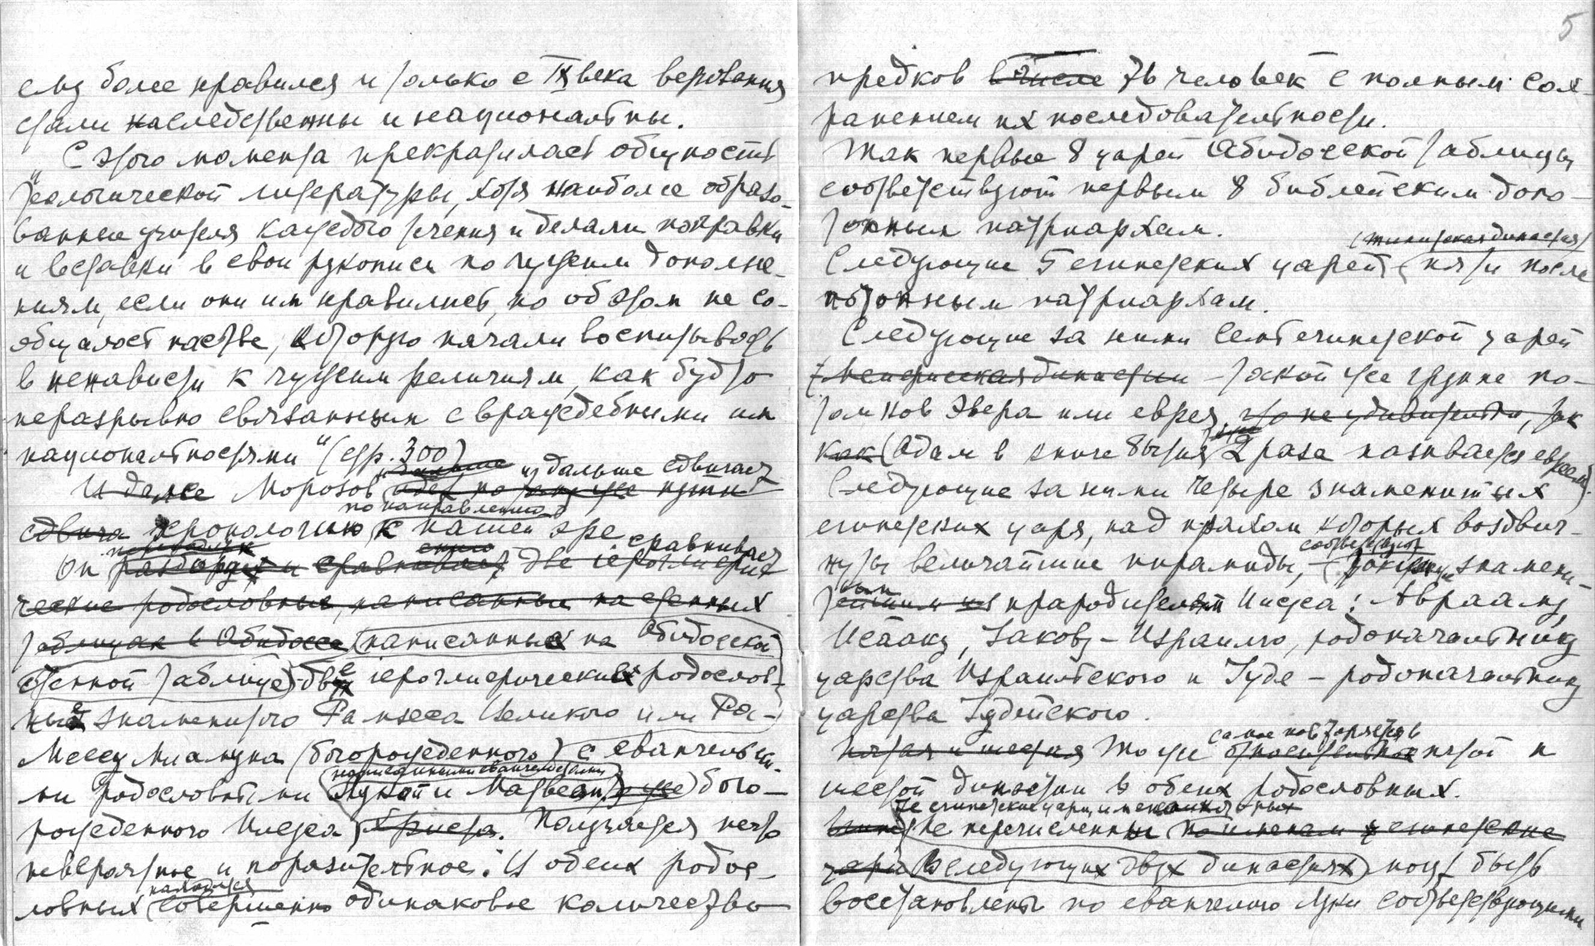 ему более нравился и только с IX века верования
стали наследственны и национальны.
С этого момента прекратилась общность
теологической литературы, хотя наиболее образо-
ванные учителя каждого течения и делали поправки
и вставки в свои рукописи по чужим дополне-
ниям, если они им нравились, но об этом не со-
общалось пастве, которую начали воспитывать
в ненависти к чужим религиям, как будто
неразрывно связанным с враждебными им
национальностями" (стр. 300)
и дальше сдвигает
И далее Морозов идет по тому же пути
по направлению
сдвига хронологию к нашей эре
сравнивает
Он разбирает и сравнивает две иероглифи-
ческие родословные, написанные на стенных
таблицах в Абидосе (написанные на Абидосской
стенной таблице) две иероглифические родослов-
ные знаменитого Рамзеса Великого или Ра-
Мессу Миамуна (богорожденного) с евангельски-
написанными евангелистами
ми родословными Лукой и Матвеем, тоже бого-
рожденного Иисуса Христа. Получается нечто
невероятное и поразительное: И обеих родос-
находится
ловных совершенно одинаковое количество
5
предков в числе 76 человек с полным сох-
ранением их последовательности.
Так первые 8 царей Абидосской таблицы
соответствуют первым 8 библейским допо-
топным патриархам.
(тинитская династия)
Следующие 5 египетских царей пяти после
потопным патриархам.
Следующие за ними семь египетской царей
(мемфисская династия) такой же группе по-
томков Эвера или еврея, что не удивительно, так
как (Адам в книге Бытия 2 раза называется евреем)
Следующие за ними четыре знаменитых
египетских царя, над прахом которых воздвиг-
соответствуют
нуты величайшие пирамиды, знамени-
тым прародителям Иисуса: Аврааму,
Исааку, Iакову-Израилю, родоначальнику
царства Израильского и Iуде - родоначальнику
царства Iудейского.
самое повторяется в
пятая и шестая То же относительно пятой и
шестой династии в обеих родословных.
Те египетских цари, имена которых
Не перечисленны по именам египетские
цари в следующих двух династиях, могут быть
восстановлены по евангелию Луки соответствующими